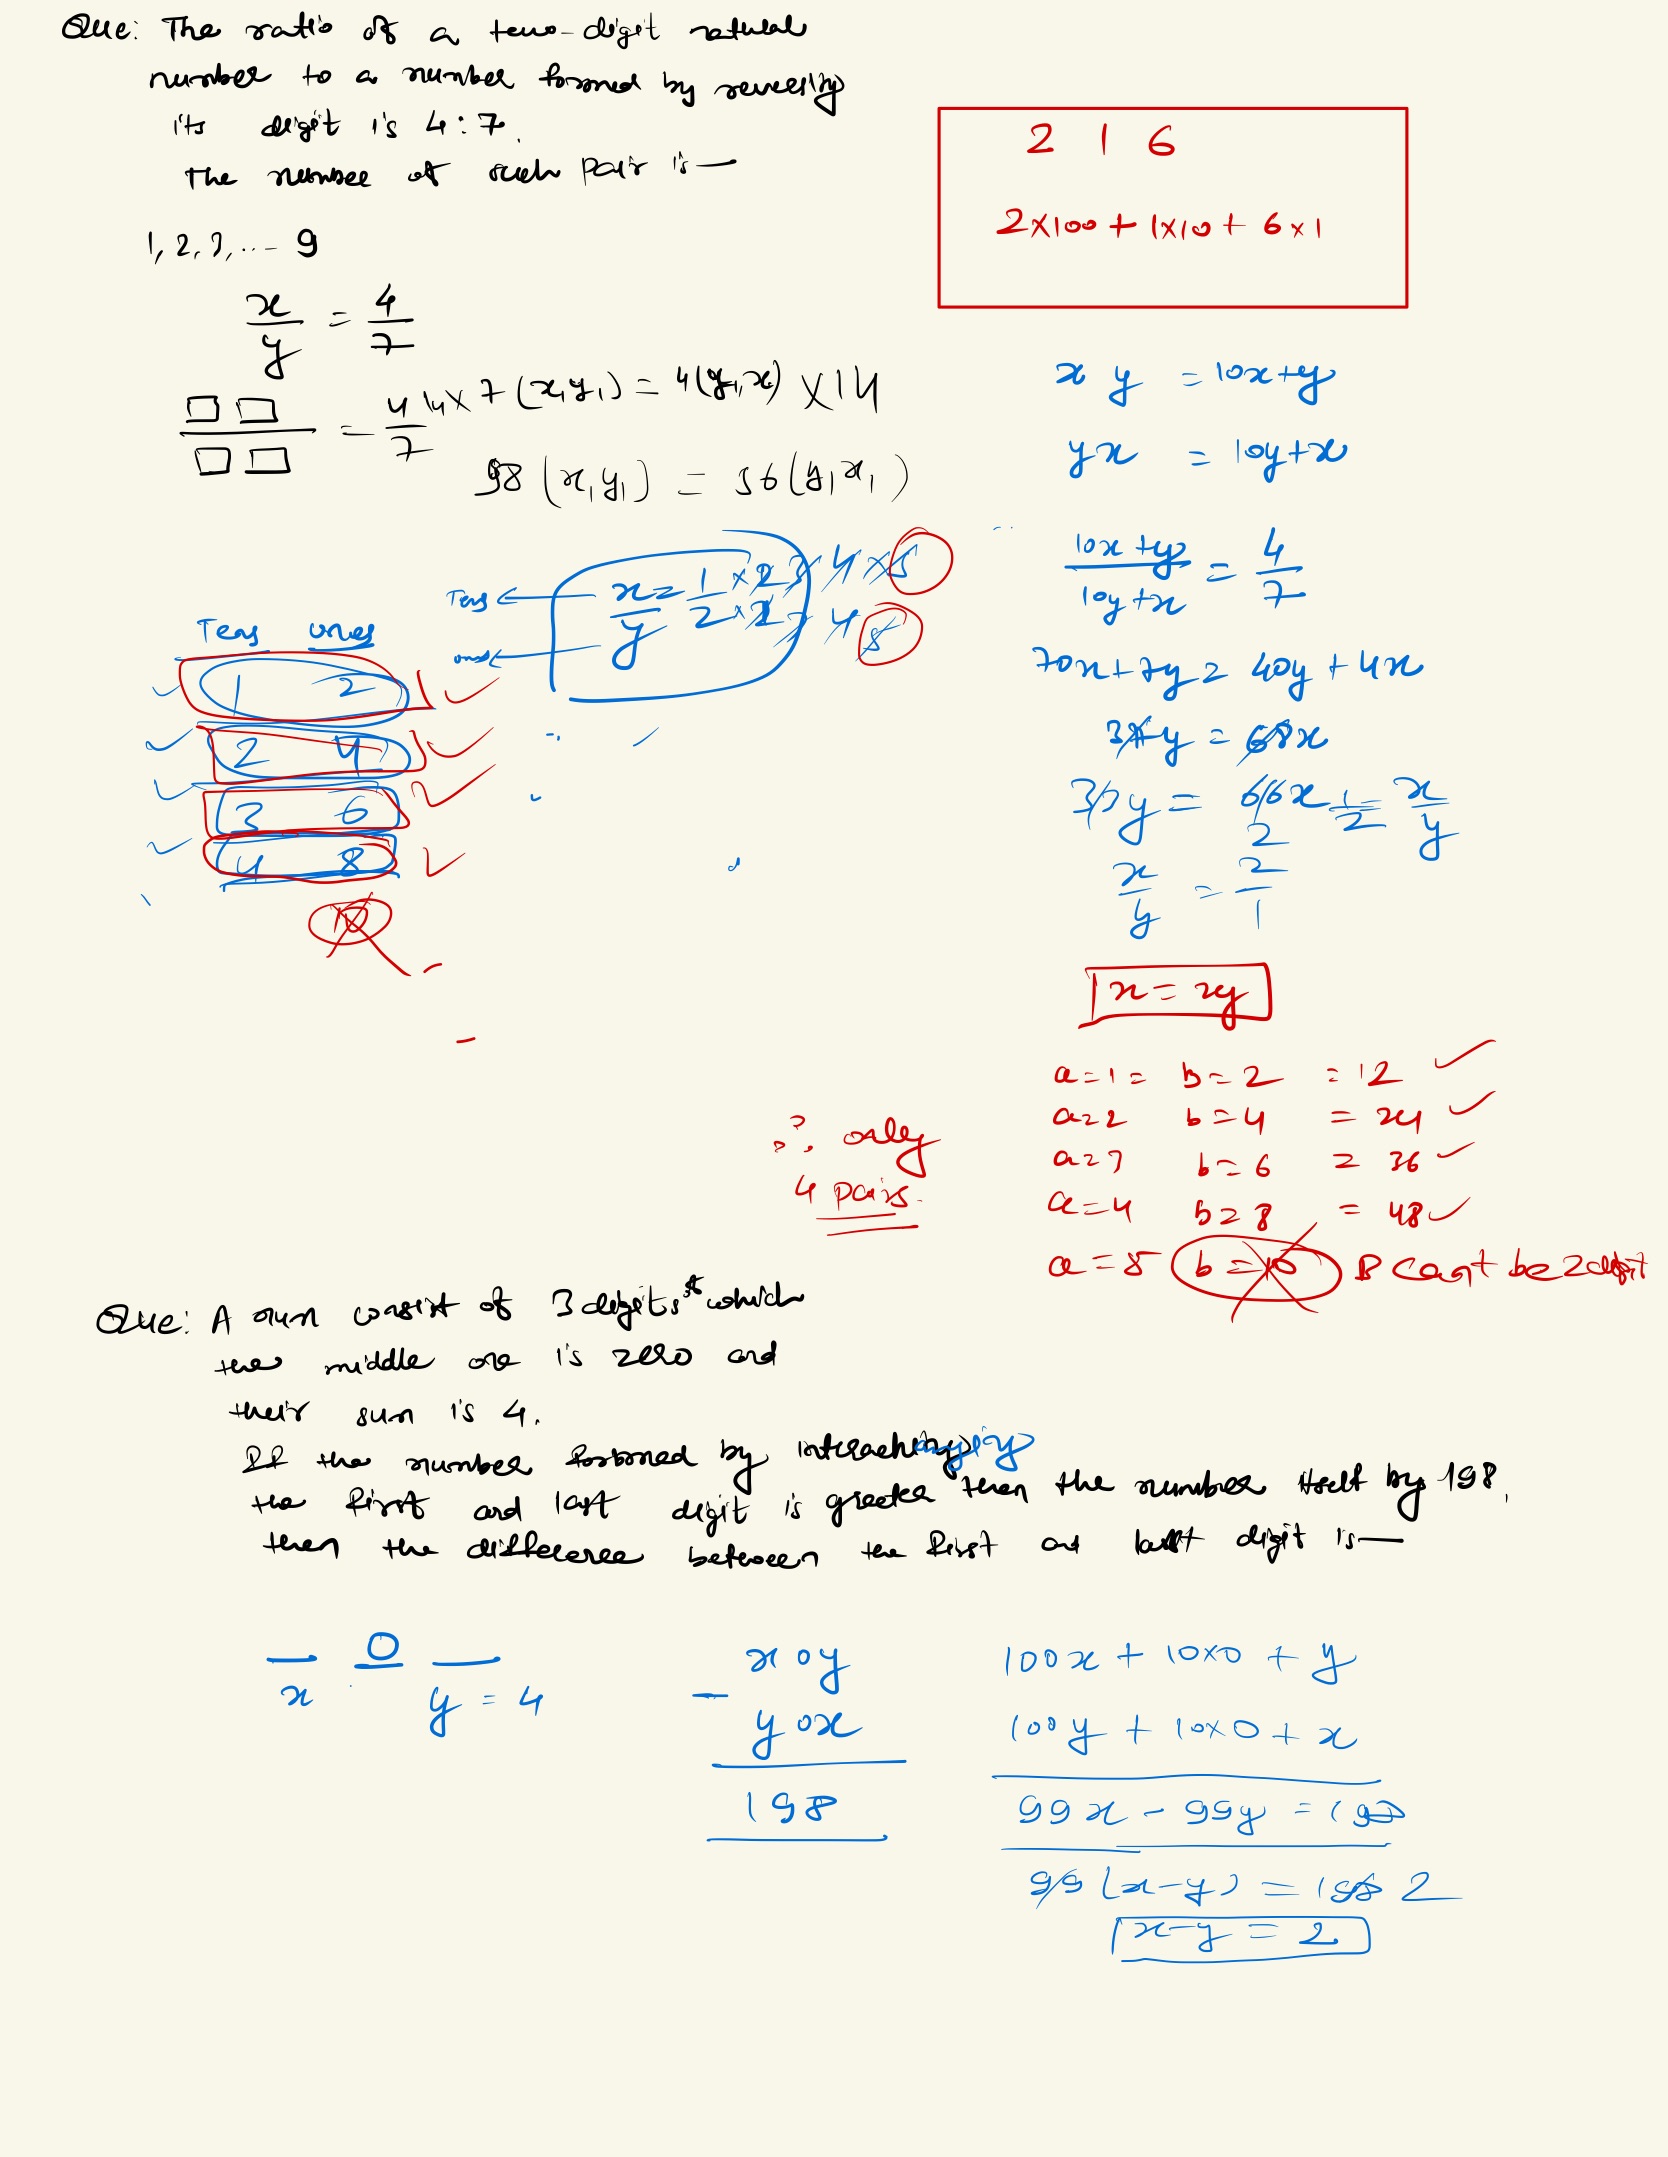 Que: The ratio of a two-digit natural
number to a number formed by reversing
its digit is 4:7.
The number of such pair is—
1, 2, 3, ... 9
x/y = 4/7
□□/□□ = 4/7
14 × 7 (x,y,) = 4(y,x) × 14
98 (x,y,) = 56 (y,x,)
2 1 6
2×100 + 1×10 + 6×1
x y = 10x+y
yx = 10y+x
10x+y/10y+x = 4/7
70x+7y = 40y+4x
y = 68x
33y = 66x 1/2 = x/y
2
x/y = 2/1
x = 2y
Tens
ones
x/y = 1/2 ×2 3 4 ×5
Tens ones
1 2
2 4
3 6
4 8
10
a=1 = b=2 = 12
a=2 b=4 = 24
a=3 b=6 = 36
a=4 b=8 = 48
a=5 b=10 B can't be 2 digit
∴ only
4 pairs.
Que: A num consist of 3 digits which
the middle one is zero and
their sum is 4.
If the number formed by interchanging
the first and last digit is greater then the number itself by 198.
then the difference between the first and last digit is—
0
x y = 4
x 0 y
- y 0 x
198
100x + 10×0 + y
100y + 10×0 + x
99x - 99y = 198
99 (x-y) = 198 2
x-y = 2